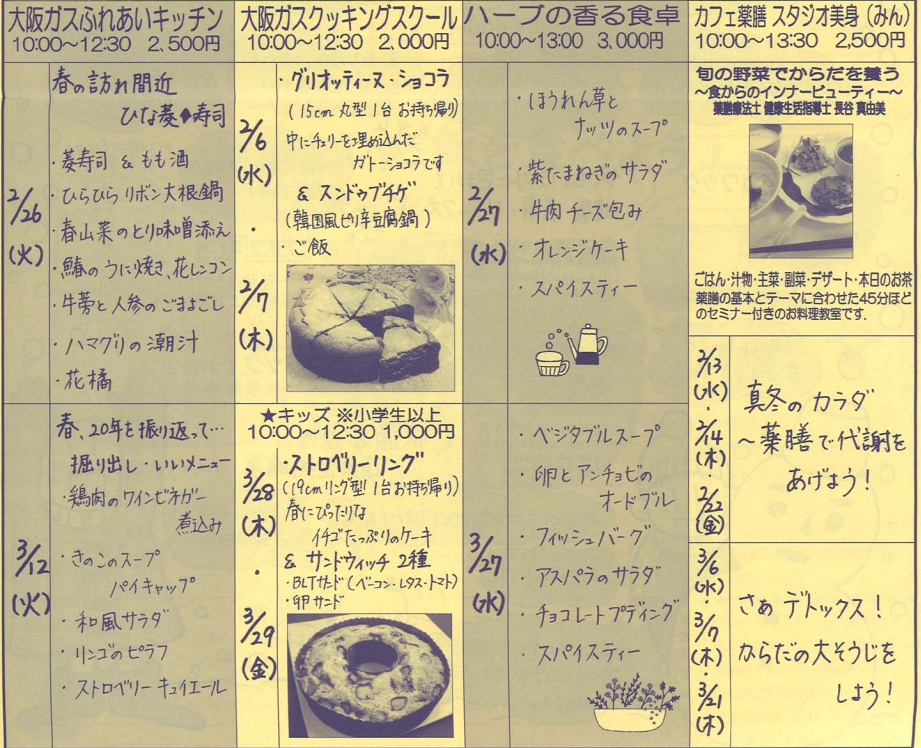 大阪ガスふれあいキッチン
10:00〜12:30 2,500円
2/26
(火)
春の訪れ間近
ひな菱◆寿司
・菱寿司 & もも酒
・ひらひら リボン大根鍋
・春山菜のとり味噌添え
・鰆のうに焼き、花レンコン
・牛蒡と人参のごまよごし
・ハマグリの潮汁
・花橘
3/12
(火)
春、20年を振り返って…
掘り出し・いいメニュー
・鶏肉のワインビネガー
煮込み
・きのこのスープ
パイキャップ
・和風サラダ
・リンゴのピラフ
・ストロベリーキュイエール
大阪ガスクッキングスクール
10:00〜12:30 2,000円
2/6
(水)
・
2/7
(木)
・グリオッティーヌ・ショコラ
(15cm 丸型 1台 お持ち帰り)
中にチェリーを埋め込んだ
ガトーショコラです
& スンドゥブチゲ
(韓国風ピリ辛豆腐鍋)
・ご飯
★キッズ ※小学生以上
10:00〜12:30 1,000円
3/28
(木)
・
3/29
(金)
・ストロベリーリング
(19cmリング型 1台お持ち帰り)
春にぴったりな
イチゴたっぷりのケーキ
& サンドウィッチ 2種
・BLTサンド(ベーコン・レタス・トマト)
・卵サンド
ハーブの香る食卓
10:00〜13:00 3,000円
2/27
(水)
・ほうれん草と
ナッツのスープ
・紫たまねぎのサラダ
・牛肉チーズ包み
・オレンジケーキ
・スパイスティー
3/27
(水)
・ベジタブルスープ
・卵とアンチョビの
オードブル
・フィッシュバーグ
・アスパラのサラダ
・チョコレートプディング
・スパイスティー
カフェ薬膳 スタジオ美身(みん)
10:00〜13:30 2,500円
旬の野菜でからだを養う
〜食からのインナービューティー〜
薬膳療法士 健康生活指導士 長谷 真由美
ごはん・汁物・主菜・副菜・デザート・本日のお茶
薬膳の基本とテーマに合わせた45分ほど
のセミナー付きのお料理教室です.
2/13
(水)
・
2/14
(木)
・
2/22
(金)
真冬のカラダ
〜薬膳で代謝を
あげよう!
3/6
(水)
・
3/7
(木)
・
3/21
(木)
さぁ デトックス!
からだの大そうじを
しよう!